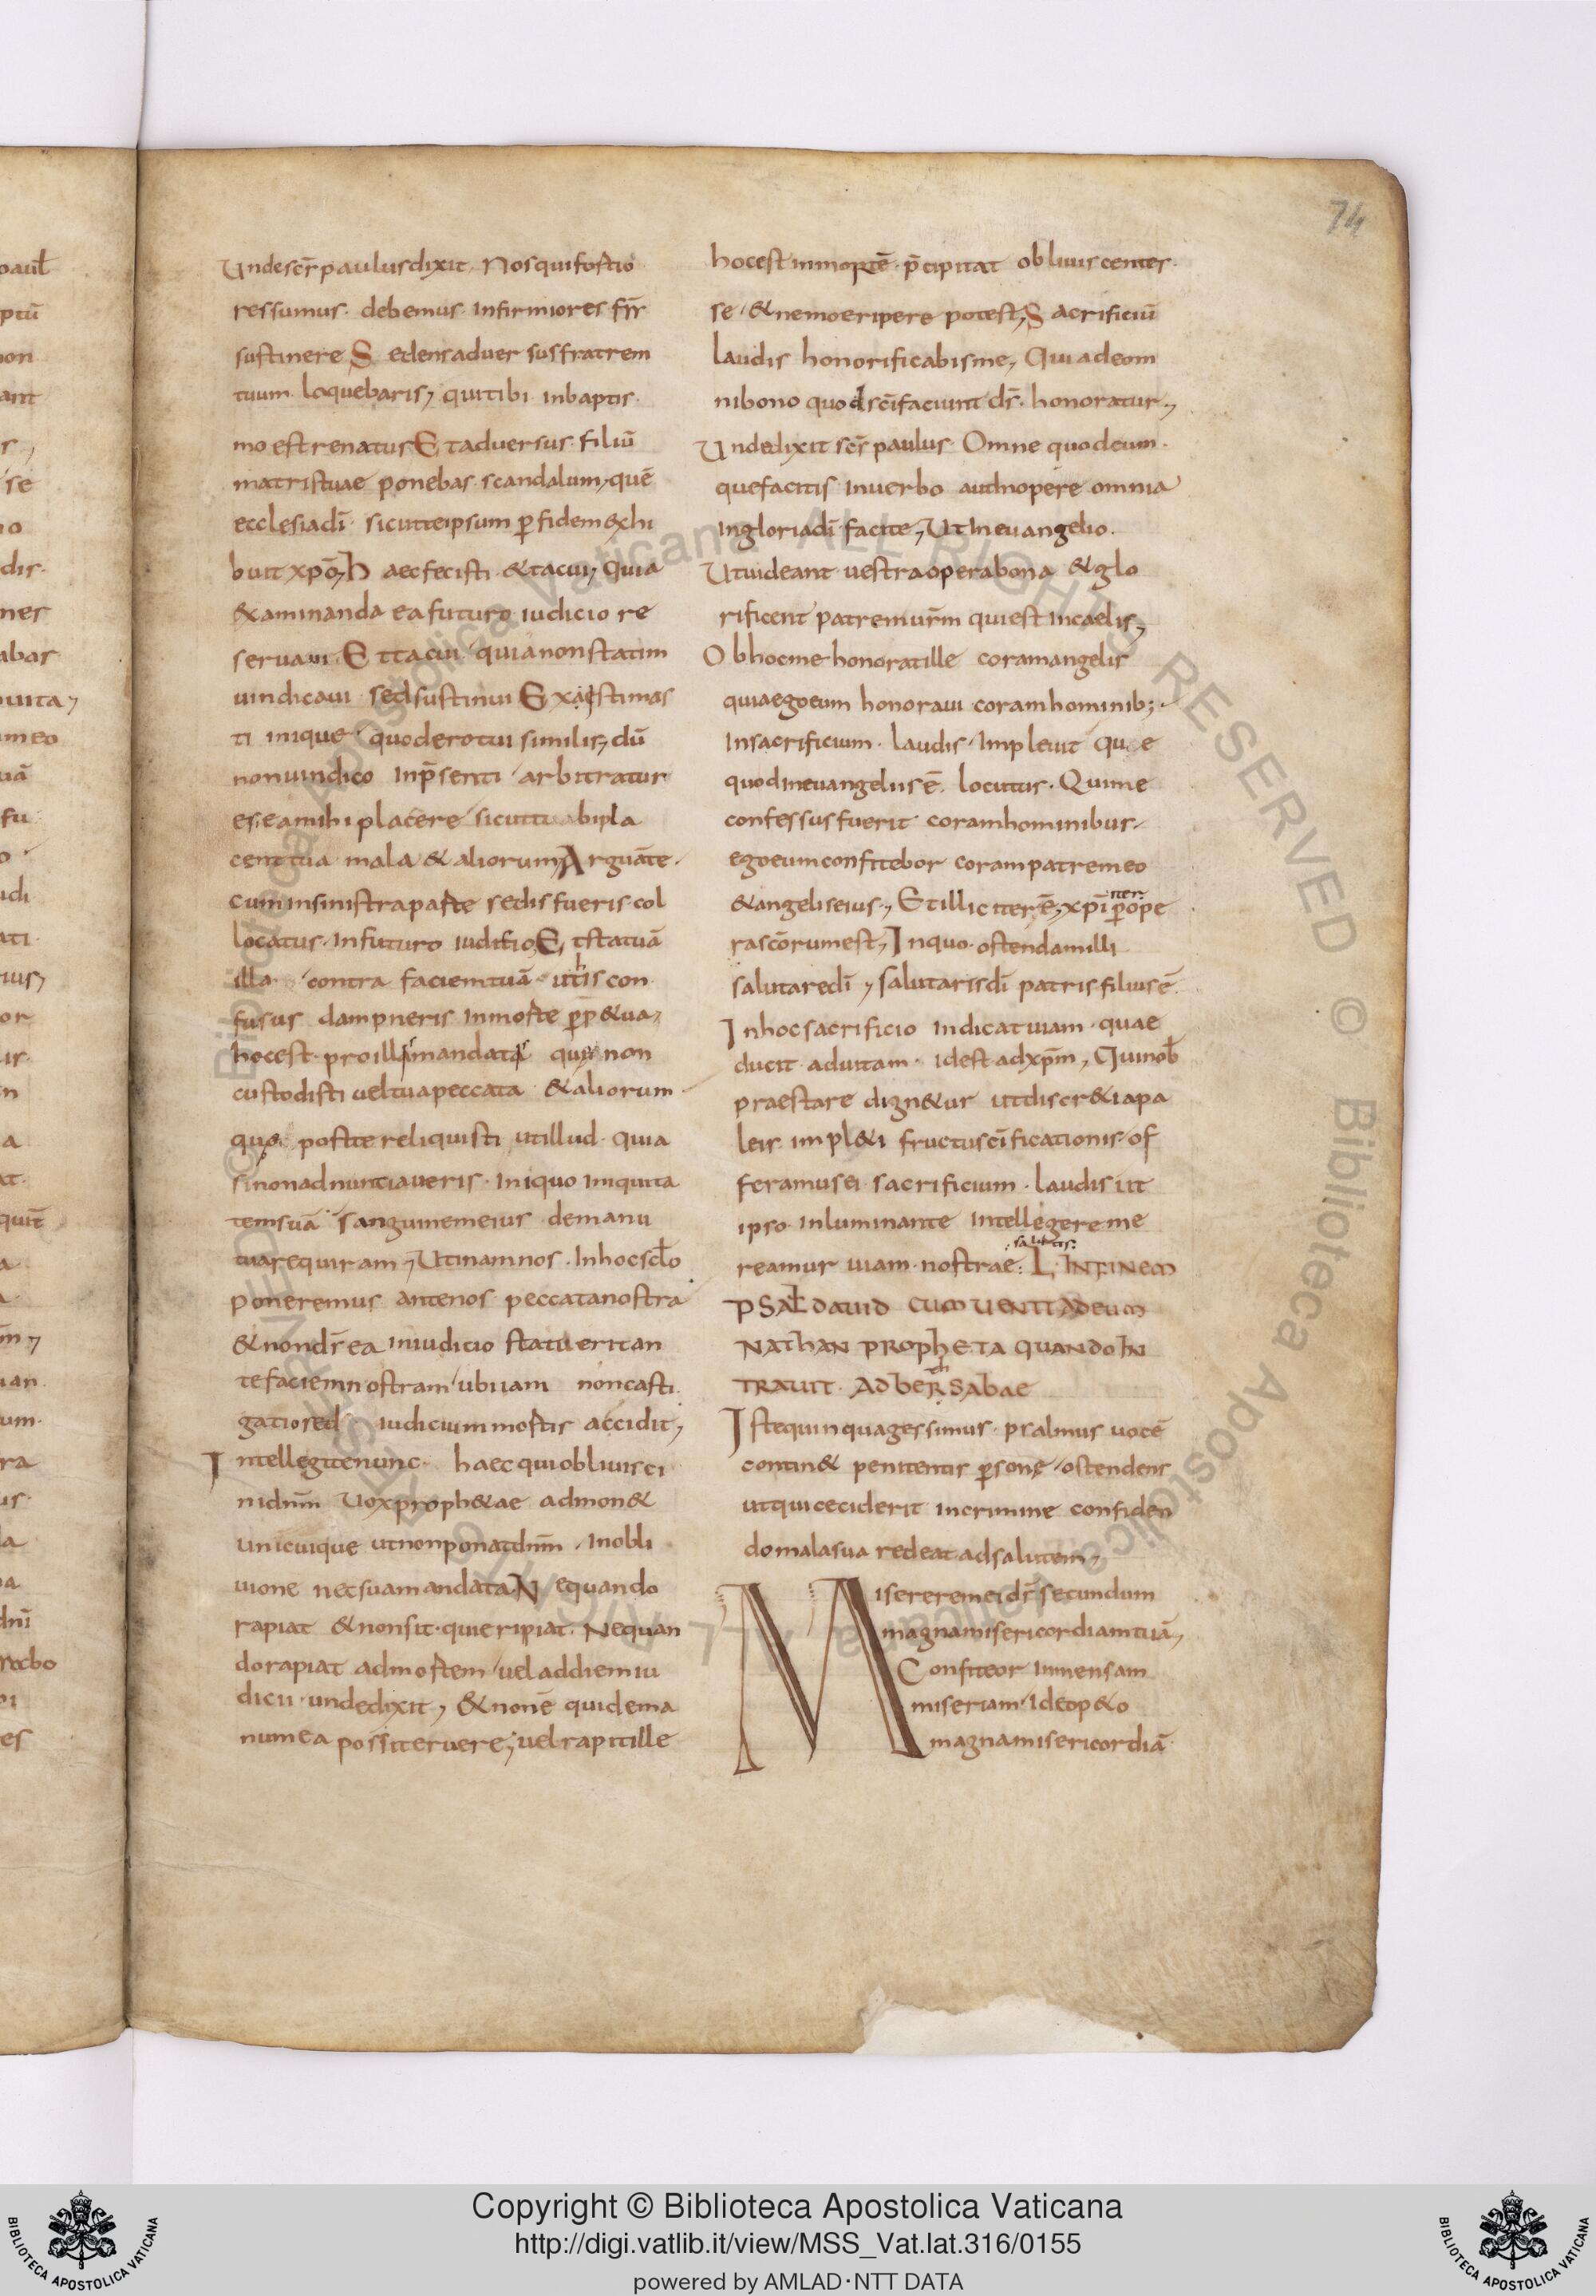 74
Unde scs̄ paulus dixit. Nos qui fortio
res sumus. debemus. infirmiores fr̄r
sustinere Sedens aduersus fratrem
tuum. loquebaris, qui tibi inbaptis.
mo est renatus Et aduersus. filiū
matris tuae ponebas. scandalum, quē
ecclesia dī. sicut te ipsum p̄ fidem exhi
buit xp̄o, haec fecisti. & tacui, quia
examinanda ea futuro. iudicio re
seruaui. Et tacui quia non statim
uindicaui. sed sustinui Existimas
ti inique. quod ero tui similis, dū
non uindico inp̄senti arbitratur
es. ea mihi placere sicut tu abi pla
cent tua mala & aliorum, Arguā te.
cum insinistra parte sedis fueris col
locatus. infuturo iuditio, Et statuā
illa contra faciem tuā. ut his con
fusus dampneris inmorte p̄p&ua,
hoc est. pro illa mandata que non
custodisti uel tua peccata & aliorum.
que. post te reliquisti ut illud. quia
si non adnuntiaueris. iniquo iniquita
tem suā. sanguinem eius de manu
tua requiram, Utinam nos. inhoc sc̄lo
poneremus ante nos peccata nostra
& non ds̄ ea iniudicio statuerit an
te faciem nostram ubi iam non casti
gatio sed iudicium mortis accidit,
Intellegite nunc. haec qui obliuisci
ni dn̄m Uox proph&ae admon&
unicuique ut non ponat dn̄m. inobli
uione nec sua mandata. Nequando
rapiat & non sit. qui eripiat. Nequan
do rapiat ad mortem uel ad diem iu
dicii. unde dixit, & non ē qui de ma
nu mea possit eruere, uel rapit ille
hoc est inmortē. p̄cipitat obliuiscentes.
se. & nemo eripere potest, Sacrificiū
laudis honorificabis me, Quia de om
ni bono quod scī faciunt ds̄. honoratur,
Unde dixit scs̄ paulus. Omne quodcum.
que facitis inuerbo aut inopere omnia
ingloria dī. facite, Ut ineuangelio.
Ut uideant uestra opera bona & glo
rificent patrem ur̄m qui est incaelis,
Ob hoc me honorat ille coram angelis
quia ego eum honoraui. coram hominib;.
Insacrificium. laudis. impleuit que
quod ineuangeliis ē. locutus. Qui me
confessus fuerit coram hominibus.
ego eum confitebor coram patre meo
& angelis eius, Et illic iter ē, xp̄i p̄ ope
iter
ra scōrum est, Inquo. ostendam illi
salutare dī, salutaris dī patris filius ē.
Inhoc sacrificio indicat uiam. quae
ducit aduitam. idest ad xp̄m, Qui nob̄
praestare dign&ur ut discr&i a pa
leis impl&i fructu scīficationis. of
feramus ei. sacrificium. laudis ut
ipso inluminante intellegere me
salutis:
reamur uiam. nostrae: L. INFINEM
PSAL̄ DAUID CUM UENIT AD EUM
NATHAN PROPHETA QUANDO IN
TRAUIT. AD BERSABAE
Iste quinquagessimus. psalmus uocē
contin& penitentis p̄sonę. ostendens
ut qui ceciderit incrimine confiden
do mala sua redeat ad salutem,
Miserere mei ds̄ secundum
magna misericordiam tuā,
Confiteor inmensam
miseriam. Ideo p&o
magna misericordiā.
Copyright © Biblioteca Apostolica Vaticana
http://digi.vatlib.it/view/MSS_Vat.lat.316/0155
powered by AMLAD·NTT DATA
BIBLIOTECA APOSTOLICA VATICANA
BIBLIOTECA APOSTOLICA VATICANA